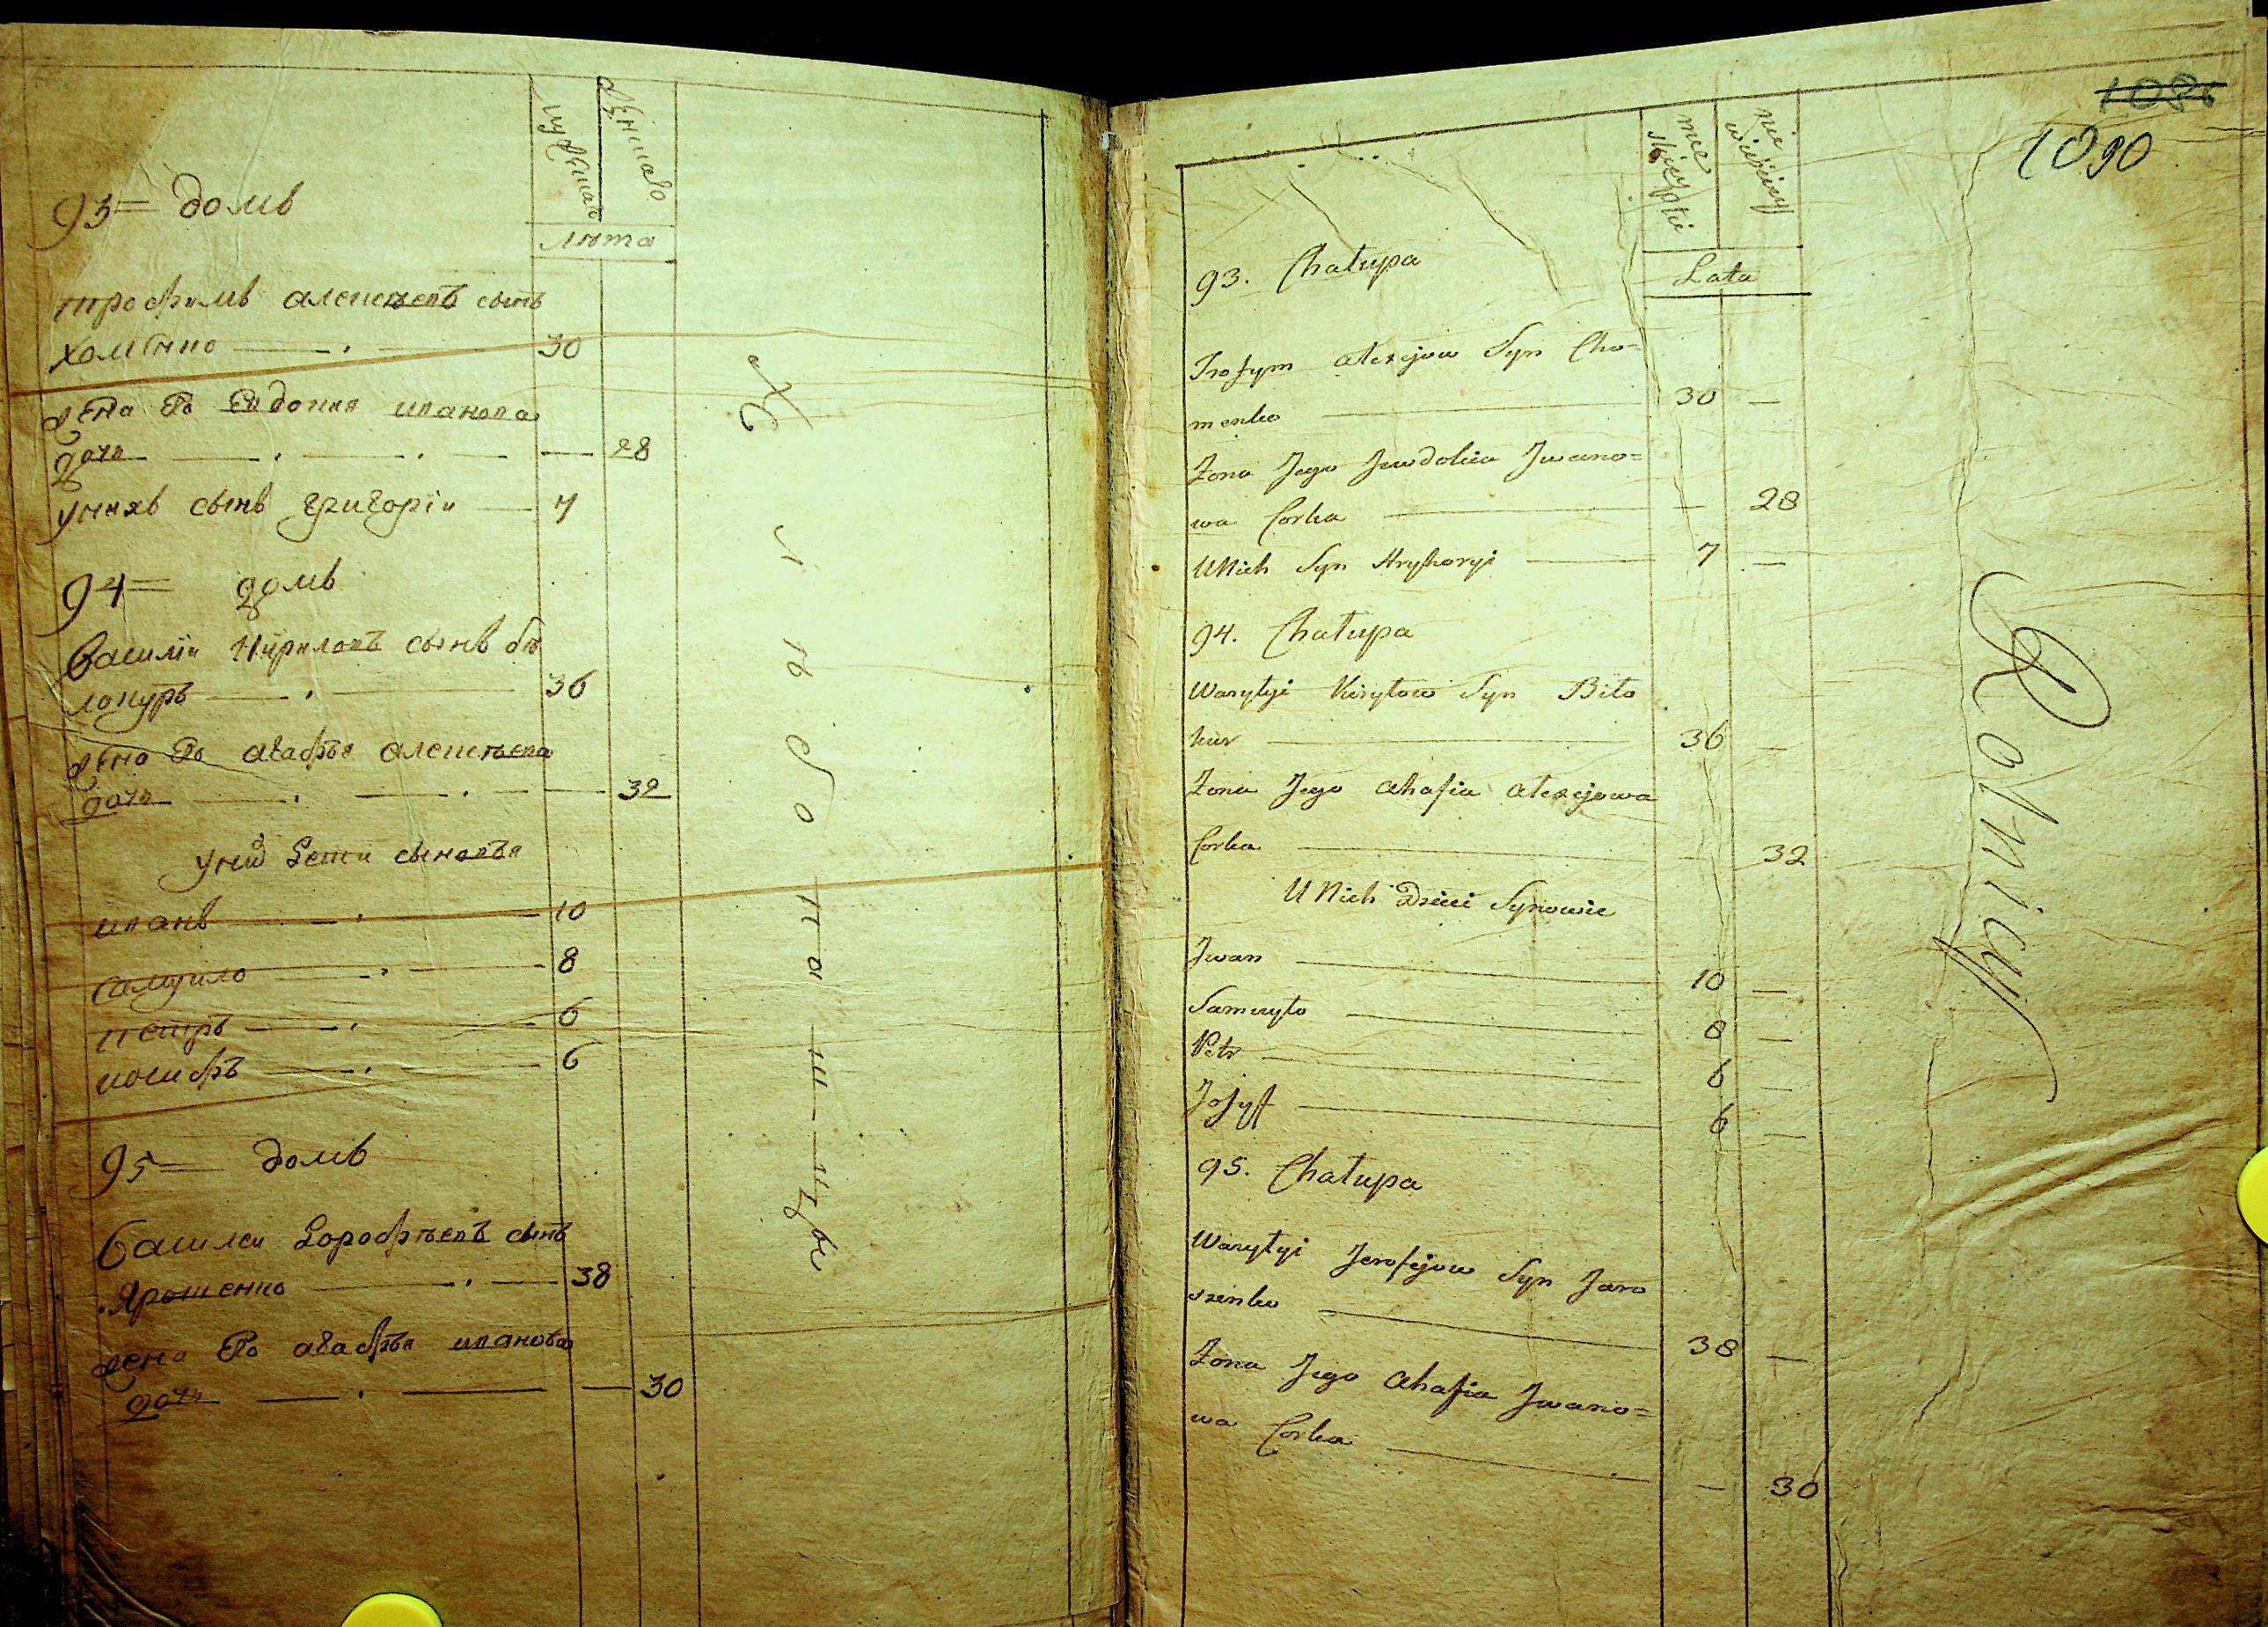 мужеска
женскаго
лѣта
93= домъ
трофимъ алексѣевъ сынъ
хоменко 30
жена его евдокия иванова
дочь — 28
у нихъ сынъ григорiи 7
94= домъ
василiи кириловъ сынъ бѣ
локуръ 36
жена его агафья алексѣева
дочь — 32
у ниⷯ дети сыновья
иванъ 10
самуило 8
петръ 6
иосифъ 6
95= домъ
василеи дорофѣевъ сынъ
ярошенко 38
жена его агафья иванова
дочь — 30
Хлѣбопашцы
1090
męż
skiey płci
nie
wieściey
Lata
93. Chałupa
Trofym Alexejow Syn Cho=
menko 30 —
Żona Jego Jewdokia Jwano=
wa Corka — 28
U Nich Syn Hryhoryi 7 —
94. Chałupa
Wasylyi Kiryłow Syn Biło
kur 36 —
Żona Jego Ahafia Alexejowa
Corka — 32
U Nich Dzieci Synowie
Jwan 10 —
Samuyło 8 —
Petr 6 —
Josyf 6 —
95. Chałupa
Wasylyi Jerofejow Syn Jaro
szenko 38 —
Żona Jego Ahafia Jwano=
wa Corka — 30
Rolnicy